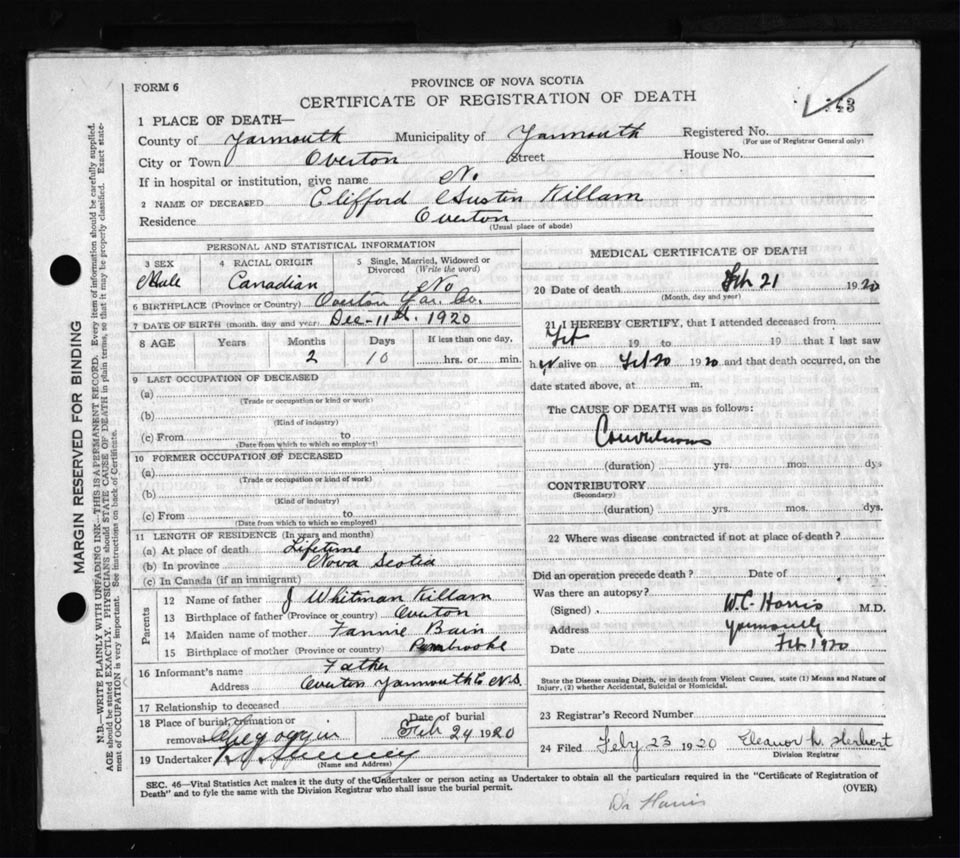 FORM 6
PROVINCE OF NOVA SCOTIA
CERTIFICATE OF REGISTRATION OF DEATH
343
1 PLACE OF DEATH—
County of Yarmouth Municipality of Yarmouth Registered No.
(For use of Registrar General only)
City or Town Overton Street House No.
If in hospital or institution, give name No.
2 NAME OF DECEASED Clifford Austin Killam
Residence Overton
(Usual place of abode)
PERSONAL AND STATISTICAL INFORMATION
3 SEX 4 RACIAL ORIGIN 5 Single, Married, Widowed or Divorced (Write the word)
Male Canadian No
6 BIRTHPLACE (Province or Country) Overton Yar. Co.
7 DATE OF BIRTH (month, day and year) Dec-11th. 1920
8 AGE Years Months Days If less than one day,
2 10 hrs. or min.
9 LAST OCCUPATION OF DECEASED
(a)
(Trade or occupation or kind or work)
(b)
(Kind of industry)
(c) From to
(Date from which to which so employed)
10 FORMER OCCUPATION OF DECEASED
(a)
(Trade or occupation or kind of work)
(b)
(Kind of industry)
(c) From to
(Date from which to which so employed)
11 LENGTH OF RESIDENCE (In years and months)
(a) At place of death Lifetime
(b) In province Nova Scotia
(c) In Canada (if an immigrant)
Parents
12 Name of father J Whitman Killam
13 Birthplace of father (Province or country) Overton
14 Maiden name of mother Fannie Bain
15 Birthplace of mother (Province or country) Pembrooke
16 Informant's name Father
Address Overton Yarmouth Co N.S.
17 Relationship to deceased
18 Place of burial, cremation or removal Chegoggin Date of burial Feb 24 1920
19 Undertaker
(Name and Address)
MEDICAL CERTIFICATE OF DEATH
20 Date of death Feb 21 1920
(Month, day and year)
21 I HEREBY CERTIFY, that I attended deceased from
Feb 19 to 19 that I last saw
h alive on Feb 20 1920 and that death occurred, on the
date stated above, at m.
The CAUSE OF DEATH was as follows:
Convulsions
(duration) yrs. mos. dys
CONTRIBUTORY
(Secondary)
(duration) yrs. mos. dys.
22 Where was disease contracted if not at place of death?
Did an operation precede death? Date of
Was there an autopsy?
(Signed) W.C. Harris M.D.
Address Yarmouth
Date Feb 1920
State the Disease causing Death, or in death from Violent Causes, state (1) Means and Nature of
Injury, (2) whether Accidental, Suicidal or Homicidal.
23 Registrar's Record Number
24 Filed Feby 23 1920 Eleanor h. Herbert
Division Registrar
SEC. 46—Vital Statistics Act makes it the duty of the Undertaker or person acting as Undertaker to obtain all the particulars required in the "Certificate of Registration of
Death" and to fyle the same with the Division Registrar who shall issue the burial permit.
(OVER)
Dr Harris
MARGIN RESERVED FOR BINDING
N.B.—WRITE PLAINLY WITH UNFADING INK—THIS IS A PERMANENT RECORD. Every item of information should be carefully supplied.
AGE should be stated EXACTLY. PHYSICIANS should STATE CAUSE OF DEATH in plain terms, so that it may be properly classified. Exact state-
ment of OCCUPATION is very important. See instructions on back of Certificate.